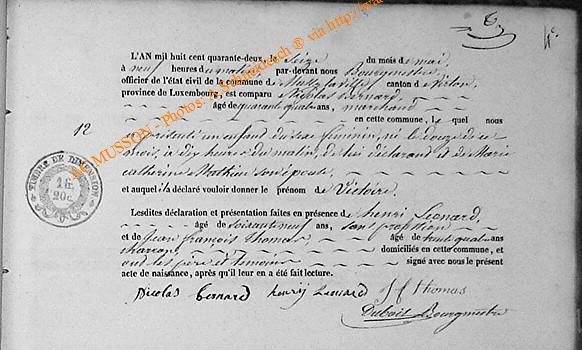 L'AN mil huit cent quarante-deux, le Seize du mois de mai,
à neuf heures du matin par-devant nous Bourgmestre
officier de l'état civil de la commune de canton de Virton,
province de Luxembourg, est comparu Nicolas Bernard,
âgé de quarante quatre ans, marchand
12
en cette commune, Le quel nous
a présenté un enfant du sexe féminin, né le douze de ce
mois, à dix heures du matin, de lui déclarant et de Marie
catherine Mathieu son épouse,
et auquel il a déclaré vouloir donner le prénom de Victoire,
Lesdites déclaration et présentation faites en présence de henri Leonard,
âgé de soixante neuf ans, sans profession
et de Jean françois Thomas âgé de trente quatre ans
domiciliés en cette commune, et
ont les père et témoins signé avec nous le présent
acte de naissance, après qu'il leur en a été fait lecture.
Nicolas Bernard henry Leonard J f thomas
Dubois Bourgmestre
TIMBRE DE DIMENSION
1 fr.
20 c.
MUSSON - Photos: A. ® via http://ww